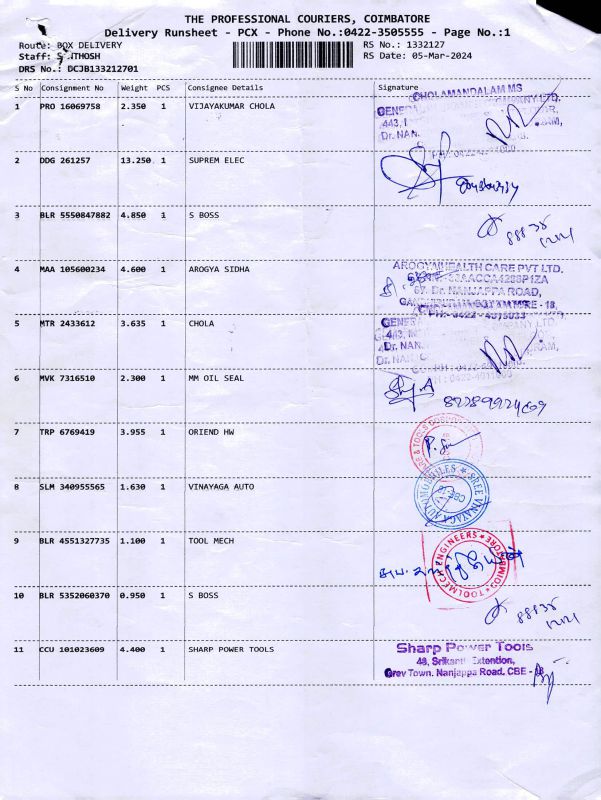 THE PROFESSIONAL COURIERS, COIMBATORE
Delivery Runsheet - PCX - Phone No.:0422-3505555 - Page No.:1
Route: BOX DELIVERY
RS No.: 1332127
Staff: S NTHOSH
RS Date: 05-Mar-2024
DRS No.: DCJB133212701
S No Consignment No Weight PCS Consignee Details Signature
1 PRO 16069758 2.350 1 VIJAYAKUMAR CHOLA
CHOLAMANDALAM MS
2 DDG 261257 13.250 1 SUPREM ELEC
3 BLR 5550847882 4.850 1 S BOSS
4 MAA 105600234 4.600 1 AROGYA SIDHA
AROGYAHEALTH CARE PVT LTD.
67, Dr. NANJAPPA ROAD,
5 MTR 2433612 3.635 1 CHOLA
6 MVK 7316510 2.300 1 MM OIL SEAL
7 TRP 6769419 3.955 1 ORIEND HW
8 SLM 340955565 1.630 1 VINAYAGA AUTO
SREE VINAYAGA AUTOMOBILES
9 BLR 4551327735 1.100 1 TOOL MECH
TOOLMECH ENGINEERS COIMBATORE
10 BLR 5352060370 0.950 1 S BOSS
11 CCU 101023609 4.400 1 SHARP POWER TOOLS
Sharp Power Tools
48, Srikanth Extention,
Grey Town, Nanjappa Road, CBE - 18